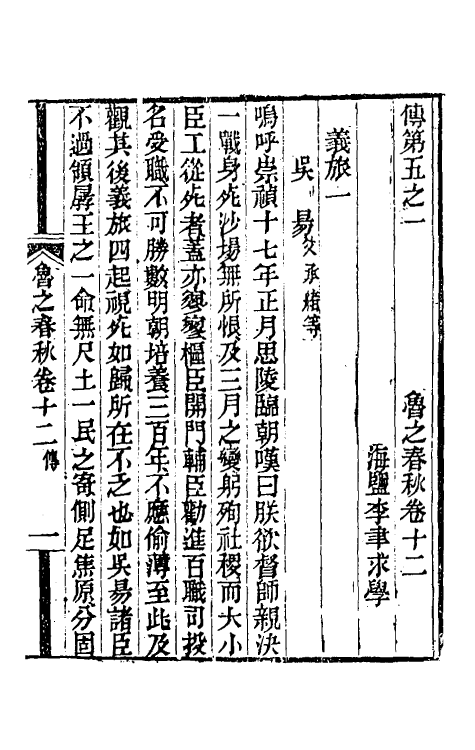 傳第五之一　魯之春秋卷十二
海鹽李聿求學
義旅一
吳易父承緒等
嗚呼崇禎十七年正月思陵臨朝嘆曰朕欲督師親決
一戰身死沙場無所恨及三月之變躬殉社稷而大小
臣工從死者蓋亦寥寥樞臣開門輔臣勸進百職司投
名受職不可勝數明朝培養三百年不應偷薄至此及
觀其後義旅四起視死如歸所在不乏也如吳易諸臣
不過領孱王之一命無尺土一民之寄側足焦原分固
魯之春秋卷十二 傳 一